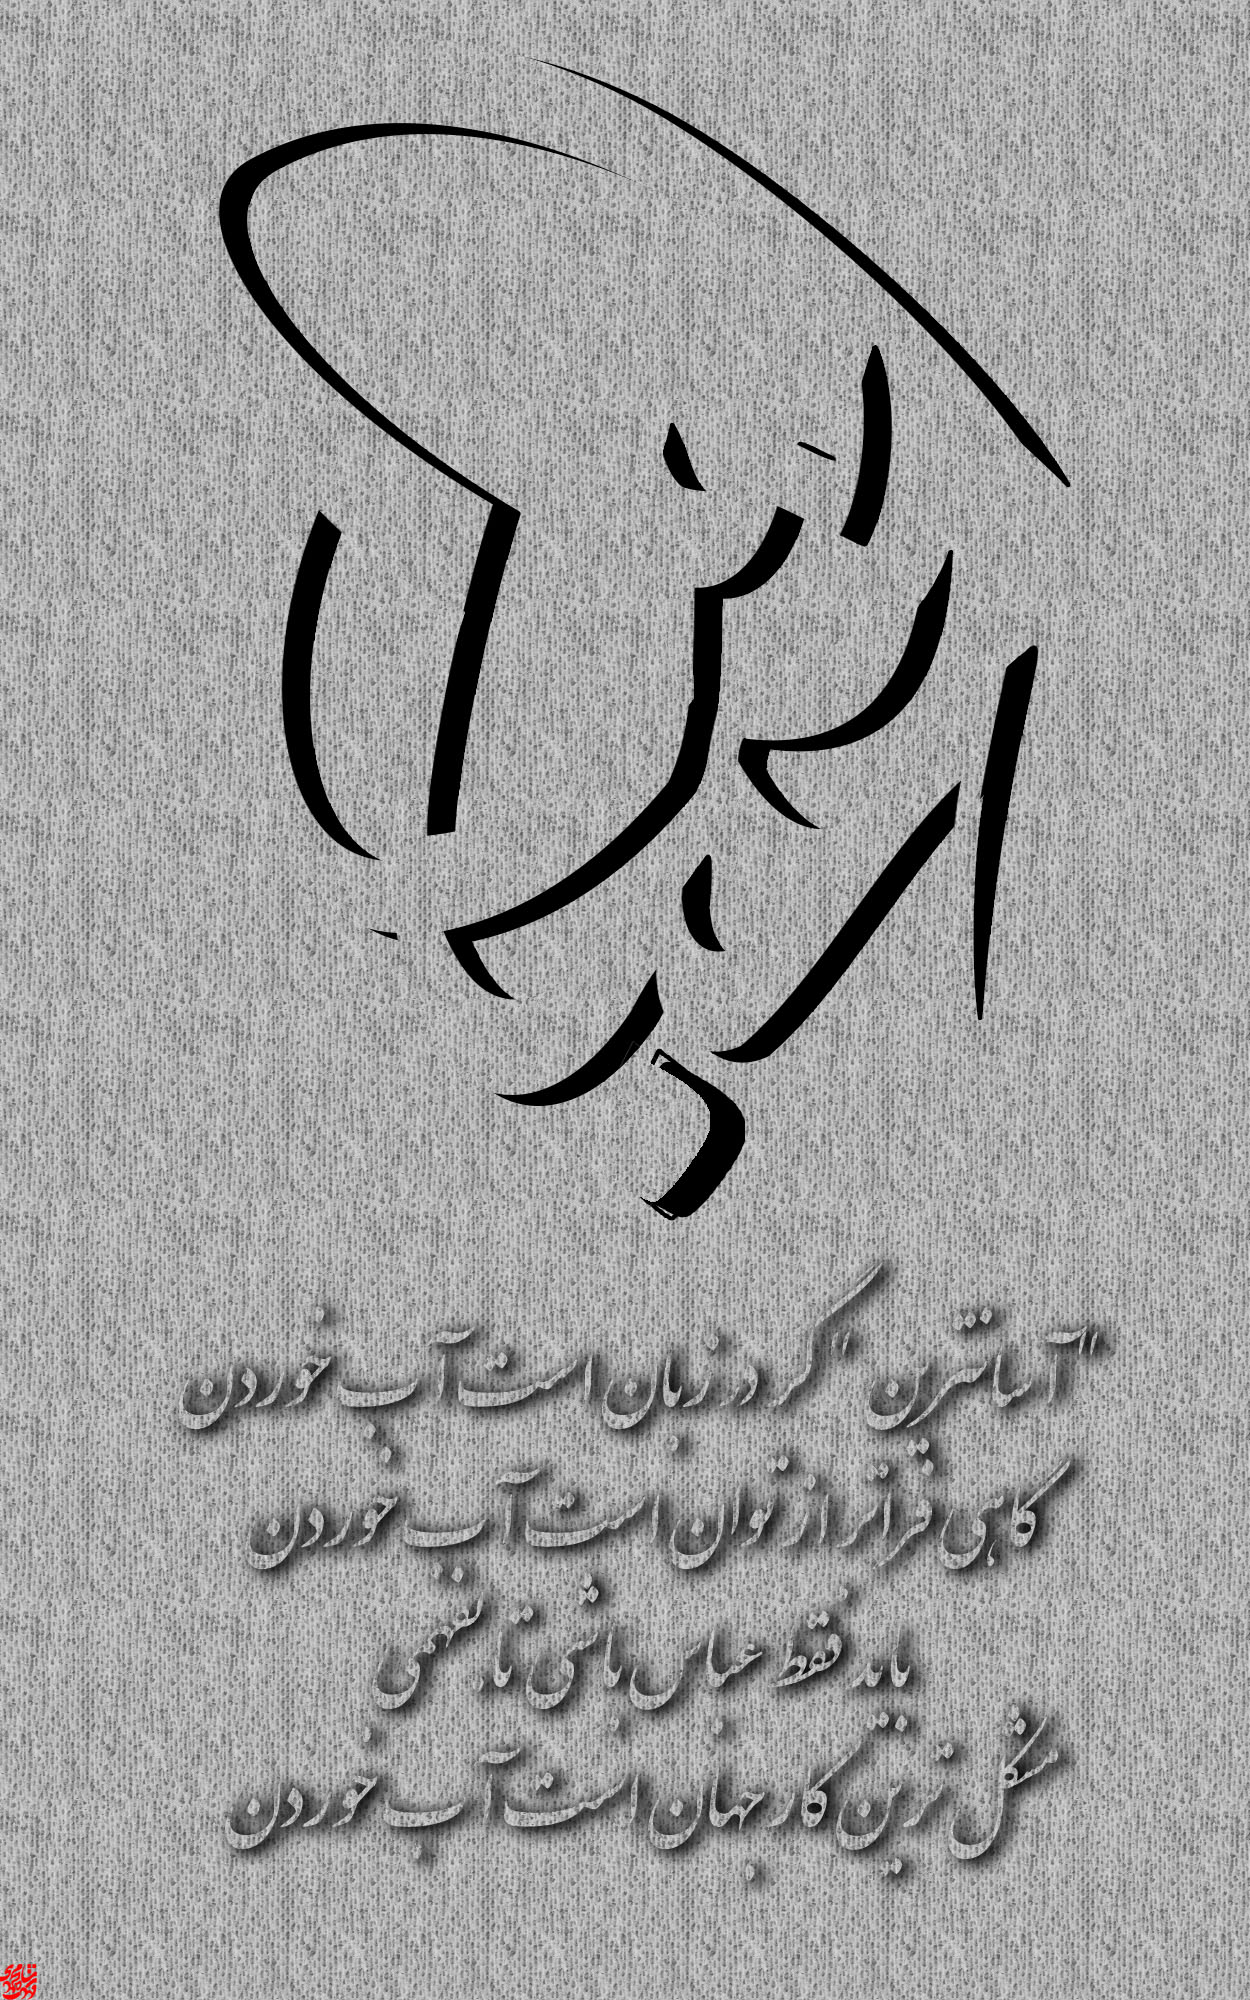 "آسانترین" گر در زبان است آب خوردن
گاهی فراتر از توان است آب خوردن
باید فقط عباس باشی تا بفهمی
مشکل ترین کار جهان است آب خوردن